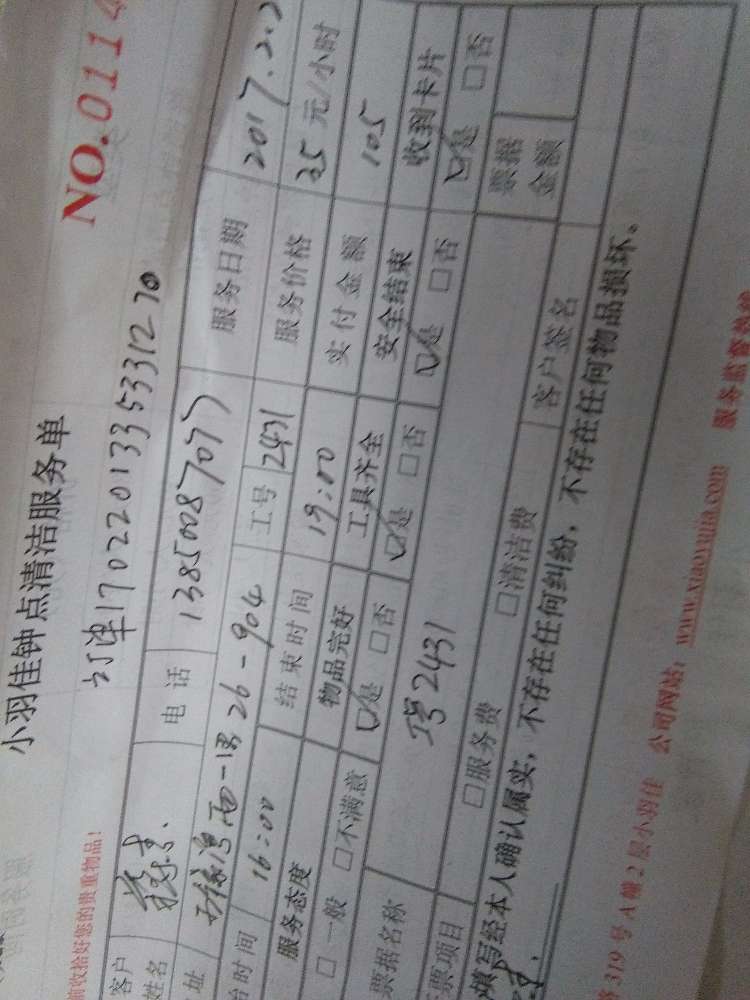 小羽佳钟点清洁服务单
NO.0114
前收拾好您的贵重物品!
订单17022013353312 70
客户姓名 电话 13850087077 服务日期 2017.2.2
址 26-904 工号 2431 服务价格 35元/小时
台时间 16:00 结束时间 19:00 实付金额 105
服务态度 物品完好 工具齐全 安全结束 收到卡片
□一般 □不满意 ☑是 □否 ☑是 □否 ☑是 □否 ☑是 □否
票据名称 2431 票据金额
票项目 □服务费 □清洁费 客户签名
填写经本人确认属实,不存在任何纠纷,不存在任何物品损坏。
路319号A幢2层小羽佳 公司网站:www.xiaoyujia.com 服务监督热线